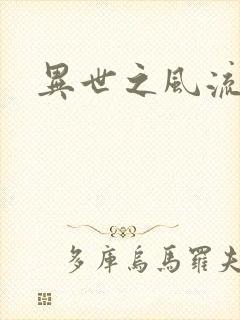 異世之風流
多庫烏馬羅夫